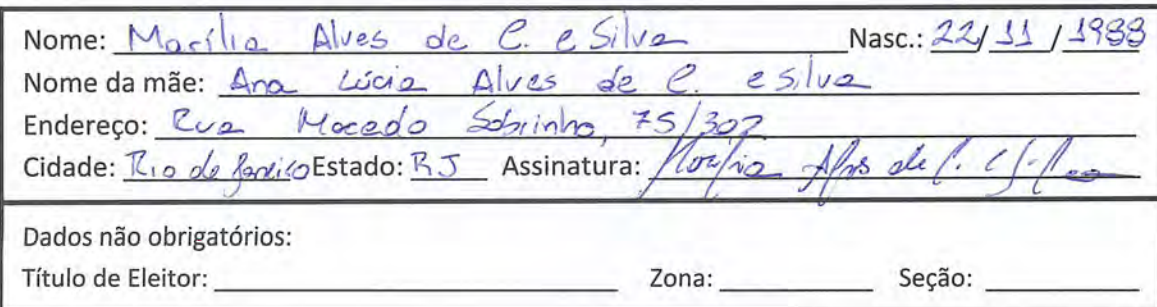 Nome: Marília Alves de C. e Silva Nasc.: 22/11/1988
Nome da mãe: Ana Lúcia Alves de C. e Silva
Endereço: Rua Macedo Sobrinho, 75/302
Cidade: Rio de Janeiro Estado: RJ Assinatura: Marília Alves de C. e Silva
Dados não obrigatórios:
Título de Eleitor: Zona: Seção: